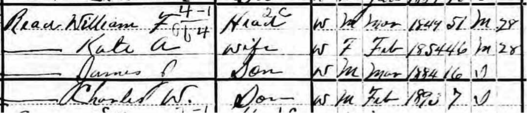 Read William F Head W M Mar 1849 51 M 28
—— Kate A Wife W F Feb 1854 46 M 28
—— James Son W M Mar 1884 16 S
—— Charles W. Son W M Feb 1893 7 S